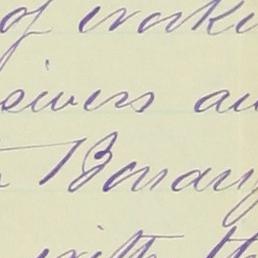 of workin
seivers an
Botany
with th